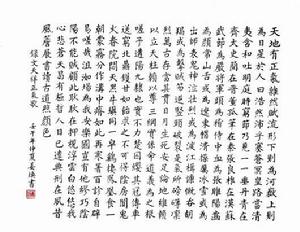 天地有正氣雜然賦流形下則為河嶽上則
為日星於人曰浩然沛乎塞蒼冥皇路當清
夷含和吐明庭時窮節乃見一一垂丹青在
齊太史簡在晉董狐筆在秦張良椎在漢蘇
武節為嚴將軍頭為嵇侍中血為張睢陽齒
為顏常山舌或為遼東帽清操厲冰雪或為
出師表鬼神泣壯烈或為渡江楫慷慨吞胡
羯或為擊賊笏逆豎頭破裂是氣所磅礴凜
烈萬古存當其貫日月生死安足論地維賴
以立天柱賴以尊三綱實繫命道義為之根
嗟予遘陽九隸也實不力楚囚纓其冠傳車
送窮北鼎鑊甘如飴求之不可得陰房闃鬼
火春院閟天黑牛驥同一皂雞棲鳳凰食一
朝蒙霧露分作溝中瘠如此再寒暑百沴自辟
易嗟哉沮洳場為我安樂國豈有他繆巧陰
陽不能賊顧此耿耿在仰視浮雲白悠悠我
心悲蒼天曷有極哲人日已遠典刑在夙昔
風簷展書讀古道照顏色
錄文天祥正氣歌
年仲夏 書